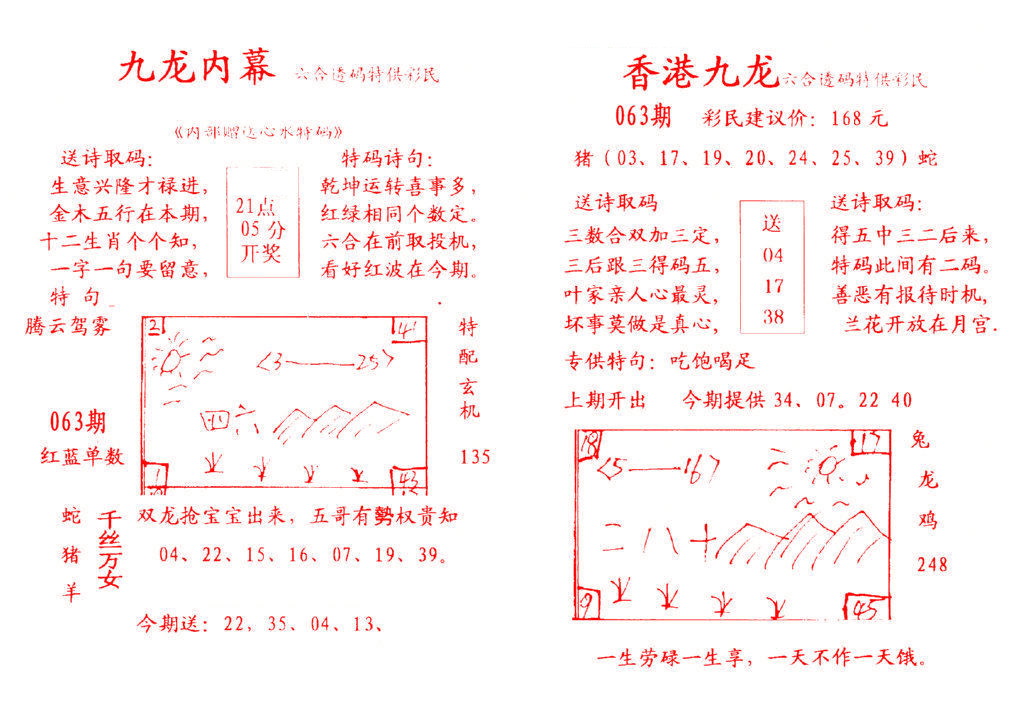 九龙内幕 六合透码特供彩民
《内部赠送心水特码》
送诗取码：
生意兴隆才禄进，
金木五行在本期，
十二生肖个个知，
一字一句要留意，
特 句
腾云驾雾
21点
05分
开奖
特码诗句：
乾坤运转喜事多，
红绿相同个数定。
六合在前取投机，
看好红波在今期。
063期
红蓝单数
21
41
<3——25>
四六
1
43
特
配
玄
机
135
蛇
猪
羊
千丝万女
双龙抢宝宝出来，五哥有勢权贵知
04、22、15、16、07、19、39。
今期送：22，35、04、13、
香港九龙 六合透码特供彩民
063期 彩民建议价：168元
猪（03、17、19、20、24、25、39）蛇
送诗取码
三数合双加三定，
三后跟三得码五，
叶家亲人心最灵，
坏事莫做是真心，
送
04
17
38
送诗取码：
得五中三二后来，
特码此间有二码。
善恶有报待时机，
兰花开放在月宫.
专供特句：吃饱喝足
上期开出 今期提供34、07。22 40
18
17
<5——16>
二八十
9
45
兔
龙
鸡
248
一生劳碌一生享，一天不作一天饿。